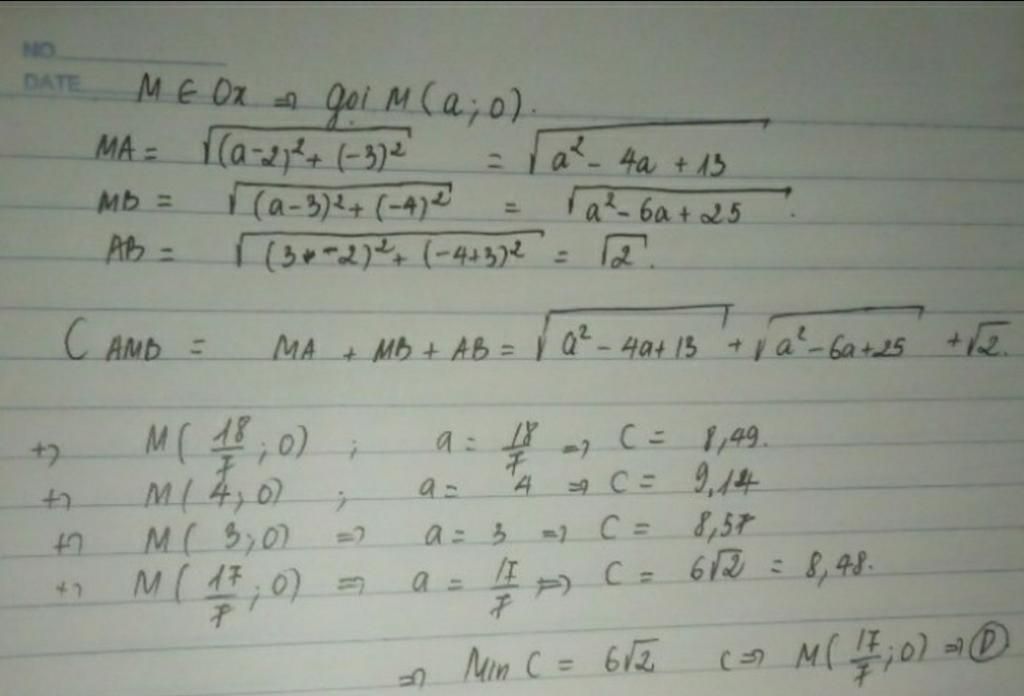 NO
DATE
M ∈ Ox ⇒ gọi M(a; 0).
MA = √((a-2)² + (-3)²) = √(a² - 4a + 13)
MB = √((a-3)² + (-4)²) = √(a² - 6a + 25).
AB = √((3-2)² + (-4+3)²) = √2.
C AMB = MA + MB + AB = √(a² - 4a + 13) + √(a² - 6a + 25) + √2.
+) M(18/7; 0) ; a = 18/7 ⇒ C = 8,49.
+) M(4; 0) ; a = 4 ⇒ C = 9,14
+) M(3; 0) ⇒ a = 3 ⇒ C = 8,57
+) M(17/7; 0) ⇒ a = 17/7 ⇒ C = 6√2 = 8,48.
⇒ Min C = 6√2 <=> M(17/7; 0) ⇒ Ⓓ